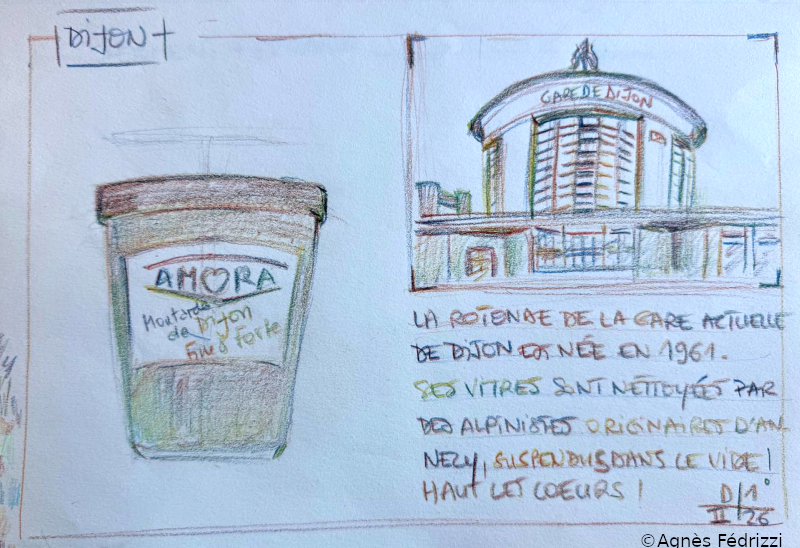 DIJON
GARE DE DIJON
AMORA
Moutarde
de Dijon
Fine & Forte
LA ROTONDE DE LA GARE ACTUELLE
DE DIJON EST NÉE EN 1961.
SES VITRES SONT NETTOYÉES PAR
DES ALPINISTES ORIGINAIRES D'AN-
NECY, SUSPENDUS DANS LE VIDE !
HAUT LES COEURS !
D 1°
II 26
©Agnès Fédrizzi